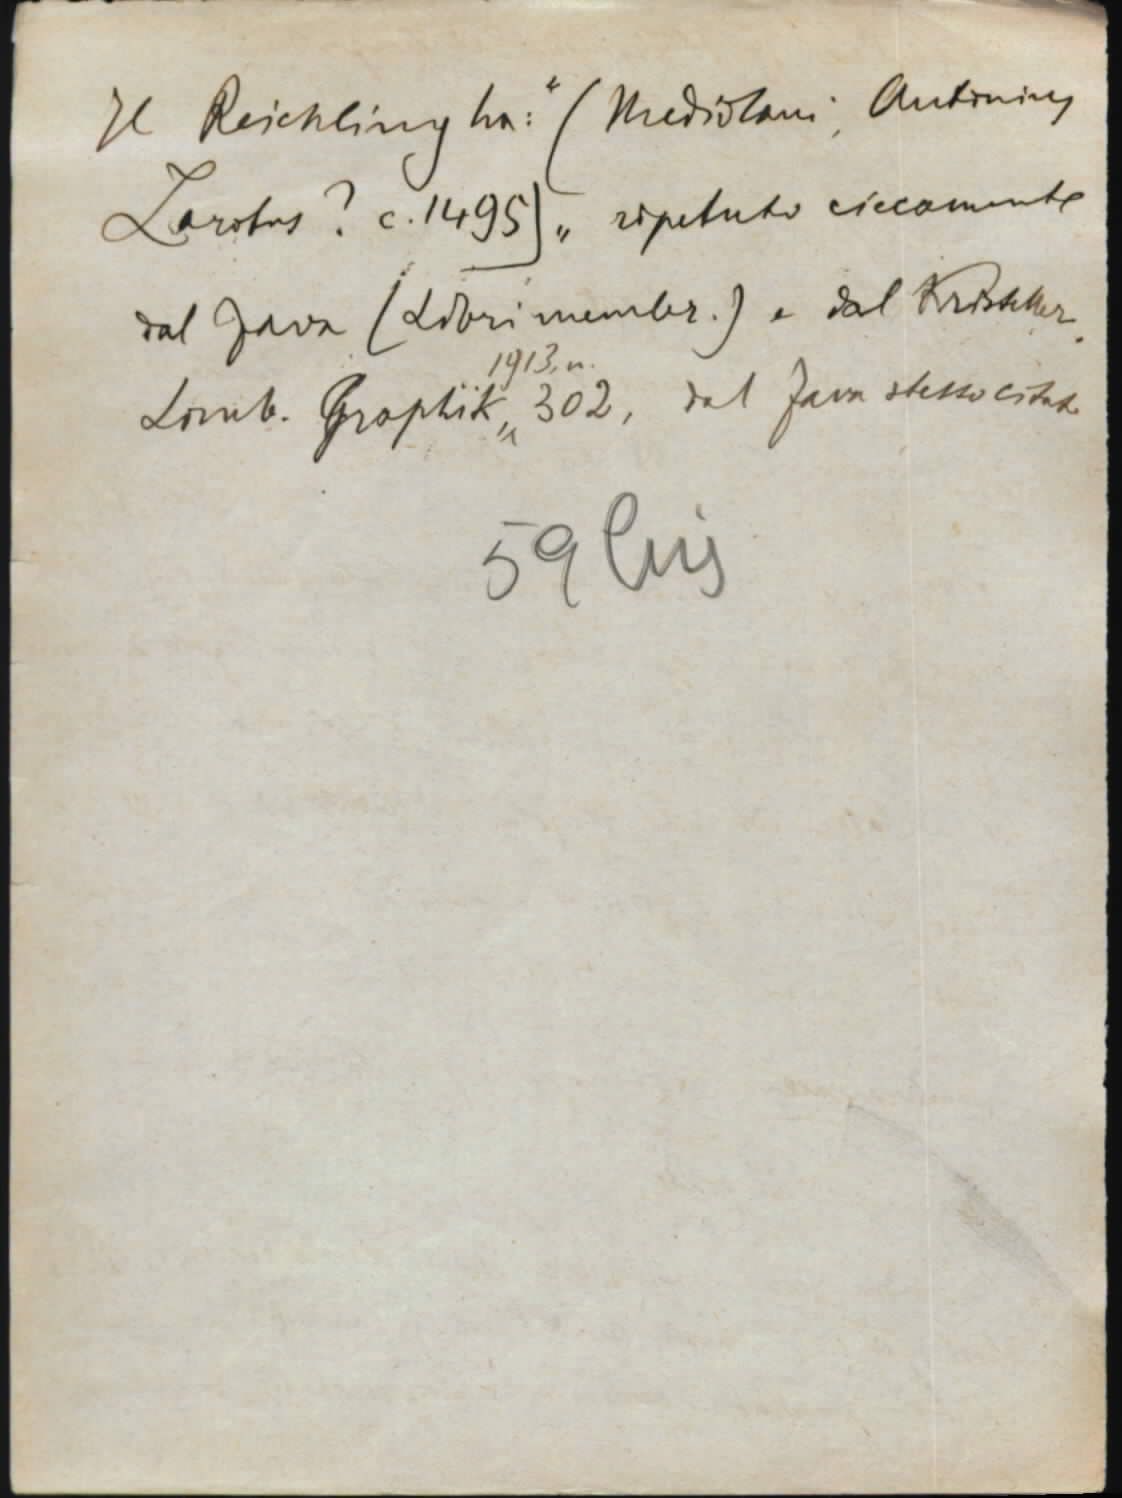 Il Reichling ha: "(Mediolani, Antonius
Zarotus? c. 1495)" ripetuto ciecamente
dal Fava (Libri membr.) e dal Kristeller.
Lomb. Graphik, 1913, n. 302, dal Fava stesso citato
59 bis